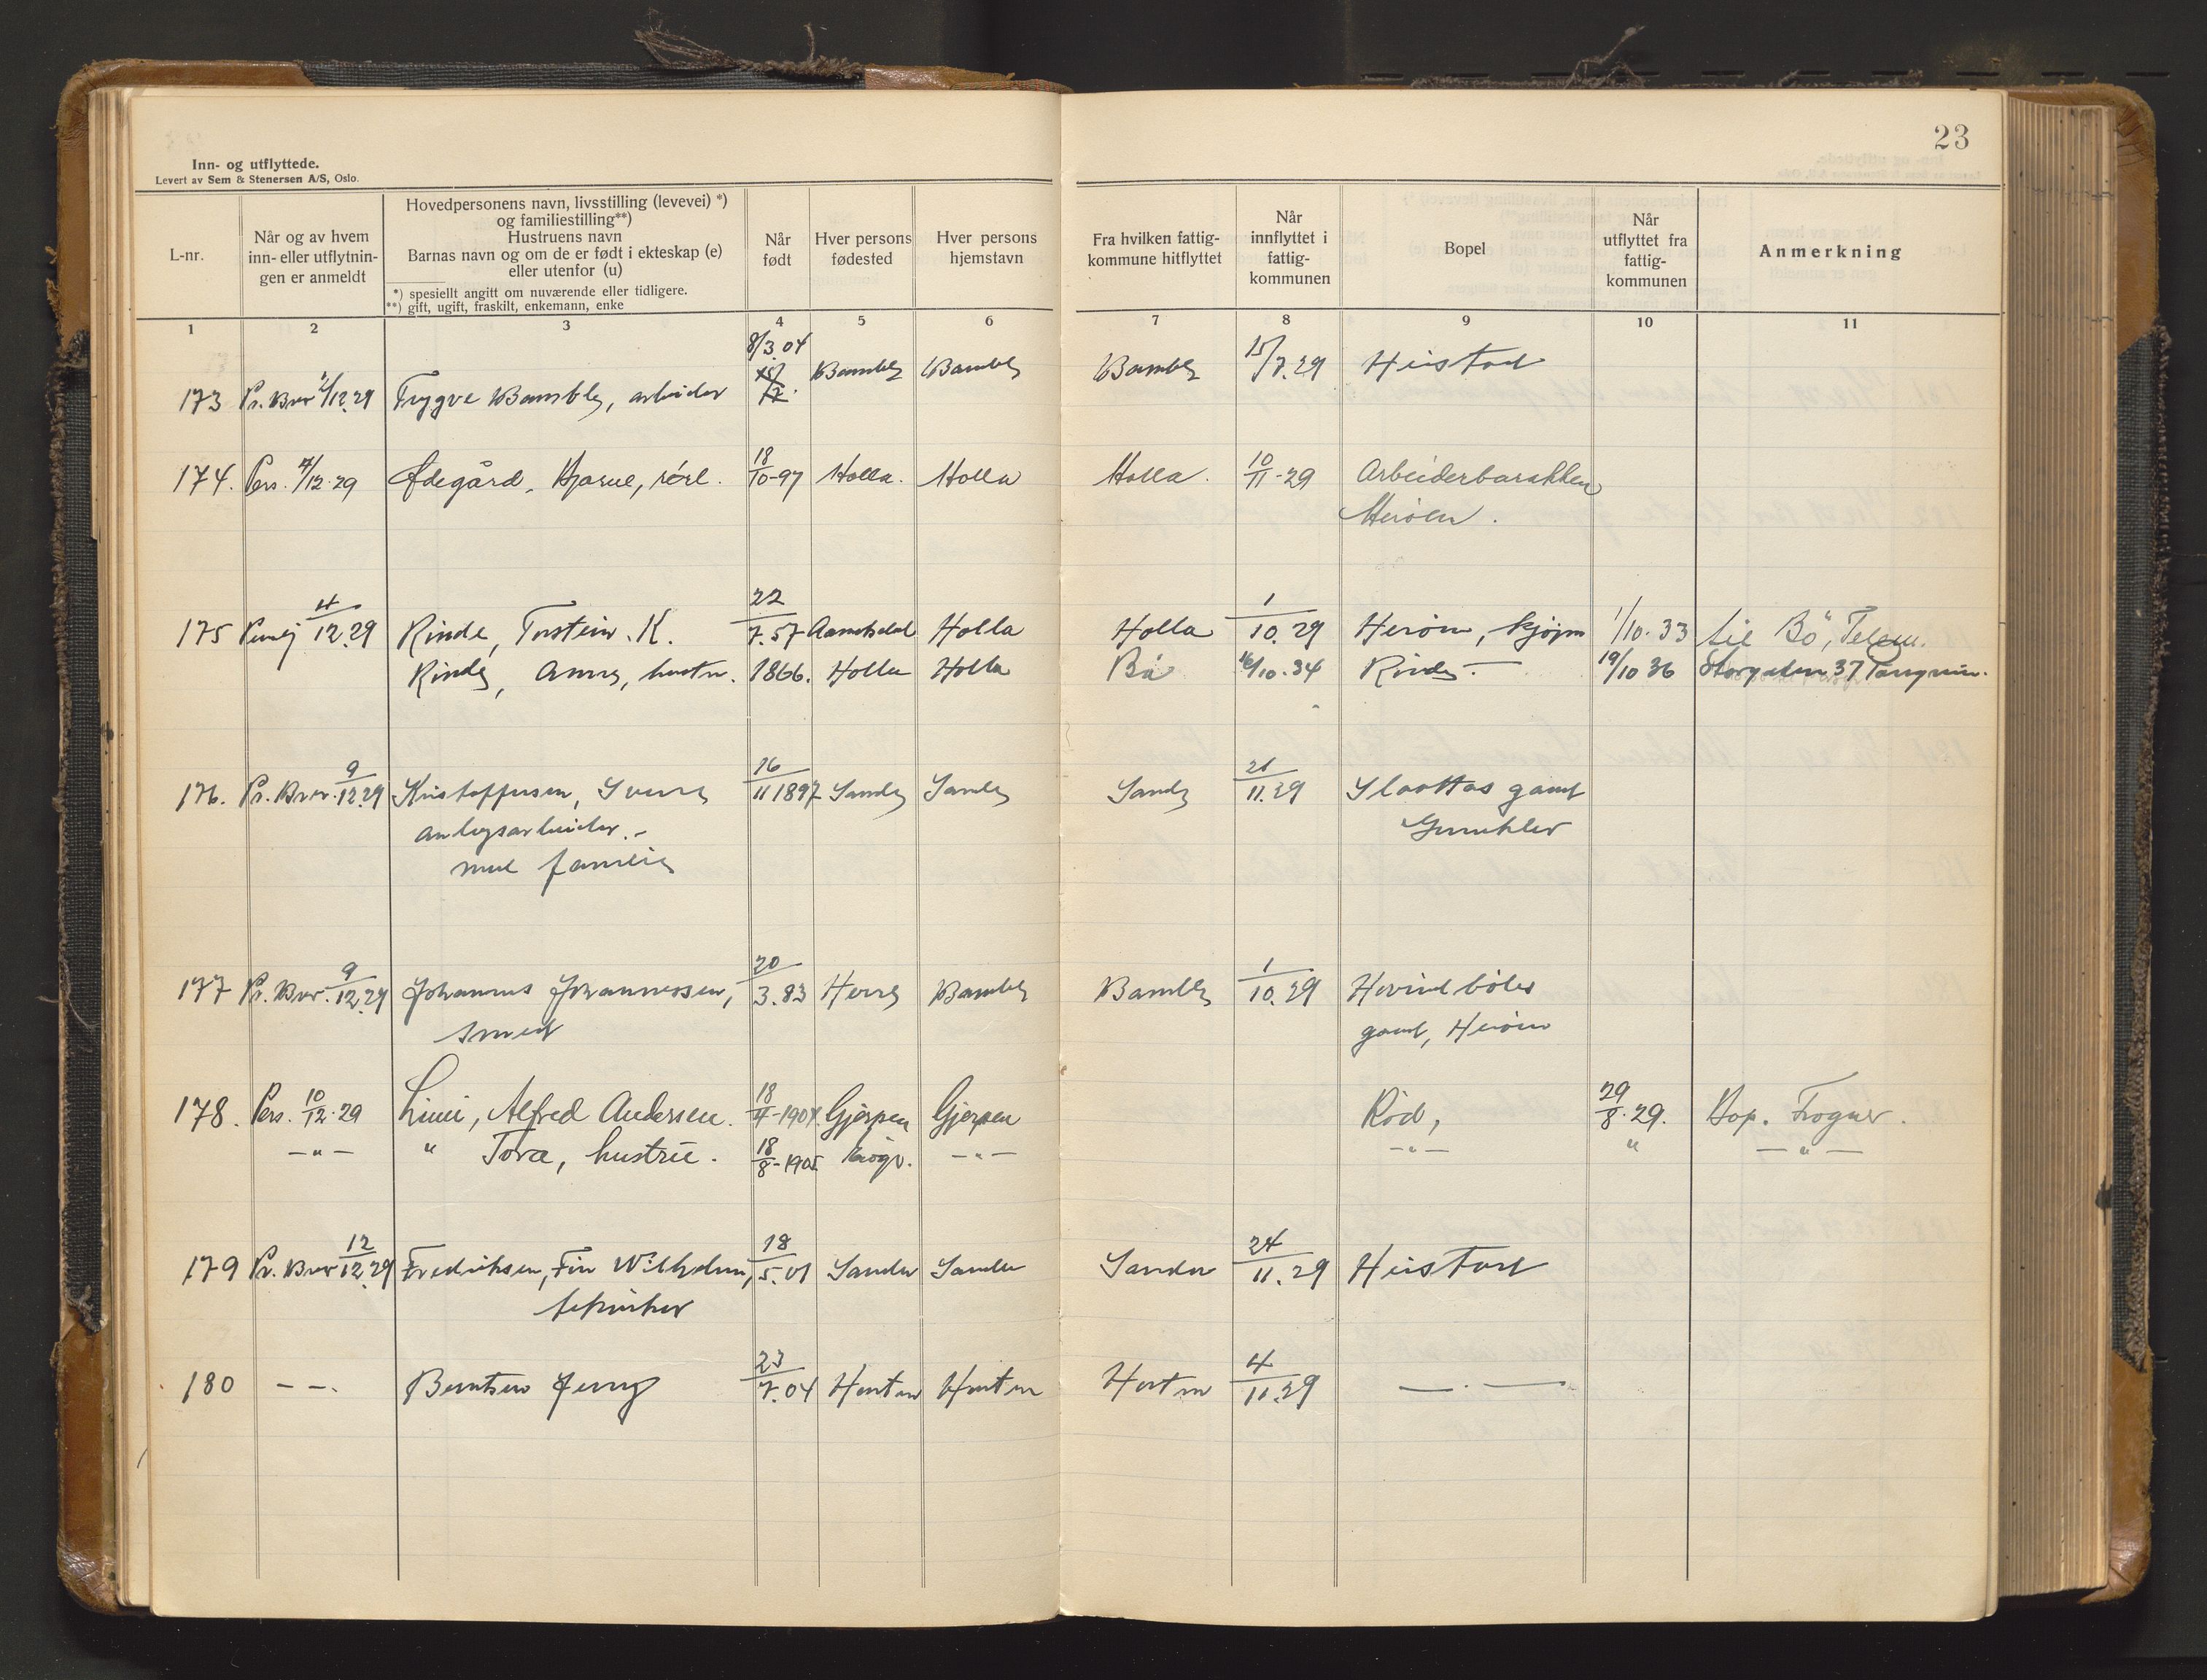 23
Inn- og utflyttede.
Levert av Sem & Stenersen A/S, Oslo.
L-nr.
Når og av hvem
inn- eller utflytnin-
gen er anmeldt
Hovedpersonens navn, livsstilling (levevei) *)
og familiestilling**)
Hustruens navn
Barnas navn og om de er født i ekteskap (e)
eller utenfor (u)
*) spesiellt angitt om nuværende eller tidligere.
**) gift, ugift, fraskilt, enkemann, enke
Når
født
Hver persons
fødested
Hver persons
hjemstavn
Fra hvilken fattig-
kommune hitflyttet
Når
innflyttet i
fattig-
kommunen
Bopel
Når
utflyttet fra
fattig-
kommunen
Anmerkning
1 2 3 4 5 6 7 8 9 10 11
8/3.04
173 Pr. Brev /12.29 Trygve Bamble, arbeider Bamble Bamble Bamble 15/7.29 Heistad
174. Pers. 4/12-29 Ødegård, Bjarne, rørl. 18/10-97 Holla. Holla Holla. 10/11-29 Arbeiderbarakken
Herøen.
175 4/12.29 Rinde, Torstein K. 22/7.57 Holla Holla 1/10.29 Herøen, 1/10.33 til Bö, Telem.
Rinde, Anne, hustru. 1866. Holla Holla Bö 16/10.34 Rinde 19/10 36 Storgaten 37
176. Pr. Brev. 9/12.29 Kristoffersen, Sverre 16/11 1897 Sande Sande Sande 21/11.29 Slaattas gaard
anlegsarbeider.-
med familie
177 Pr. Brev. 9/12.29 Johannes Johannessen, 20/3.83 Herre Bamble Bamble 1/10.29
smed gaard, Herøen
178. Pers. 10/12-29 Limi, Alfred Andersen. 18/4-1904. Gjerpen Gjerpen Rød, 29/8.29. Bop. Frogner.
—"— " Tora, hustru. 18/8-1905 —"— —"— " —"—
179 Pr. Brev 12/12.29 Fredriksen, Fin Wilhelm, 18/5.01 Sandar Sandar Sandar 24/11.29 Heistad
tekniker
180 — —. Berntsen 23/7.04 Horten Horten Horten 4/11.29 —.—